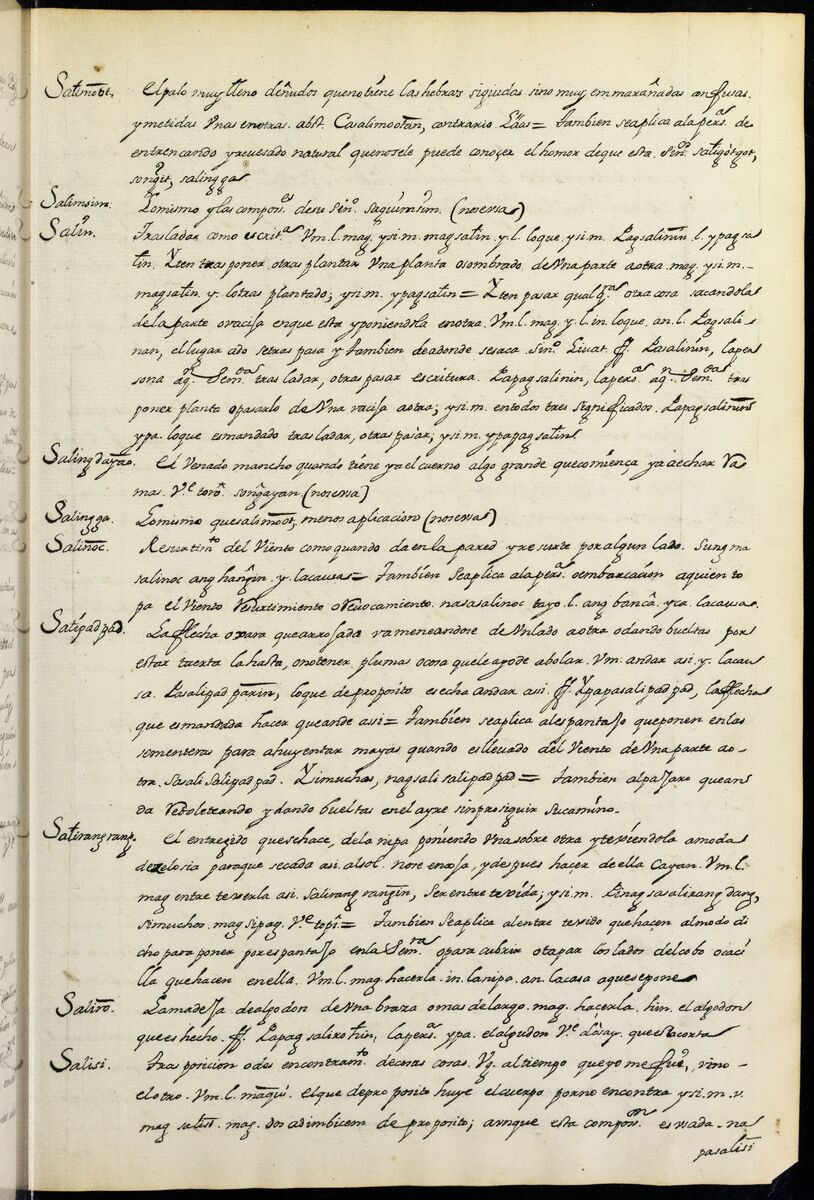 Salimoōt. El palo muy lleno de ñudos que no tiene las hebras siguidas sino muy emmarañadas confusas
y metidas Vnas en otras. abst. Casalimootan, contrario. Láas= tambien se aplica a la pers.ª de
entrencando y rreuesado natural que no se le puede conoçer el homor de que esta. sin.º saligotgot,
songit, salingga
Salimsim. Lo mismo y las compos.es de su sin.º saguimsim. (no se usa)
Salin. trasladar como escrit.ª Vm. l. mag. y si. m. magsalin. y. l. lo que. y si. m. Pagsalinin. l. ypagsa
lin. Yten trasponer otras plantar Vna planta o sombrado de Vna parte a otra. mag. y si. m.
magsalin. y. lo tras plantado; y si. m. ypagsalin= Yten pasar qualq.ra otra cosa sacandola
de la parte o vaçisa en que esta y poniendola en otra. Vm. l. mag. y. l. in. lo que. an. l. Pagsali
nan, el lugar ado se tras pasa y tambien de adonde se saca. sin.º Liuat. ff. Pasalinin, la per
sona aq.n Sem.da trasladar, otras pasar escritura. Papagsalinin, la pers.ª aq.n Sem.da tras
poner planta o pasarlo de Vna vaçisa a otra; y si. m. en todos tres significados. Papagsalinin
ypa. lo que es mandado trasladar, otras pasar; y si. m. ypapagsalin
Salingdayao. El Venado mancho quando tiene ya el cuerno algo grande que comiença ya a echar Ra
mas. V.e toro. songayan (no se usa)
Salingga. Lo mismo que salimoot, menos aplicacion (no se usa)
Salinoc. Resurtim.to del Viento como quando da en la pared y rresurte por algun lado. Sungma
salinoc ang hangin. y. la causa= Tambien se aplica a la pers.ª o embarcacion a quien to
pa el Viento Resurtimiento o Reuocamiento. nasasalinoc tayo. l. ang bancâ. yca. la causa.
Salipadpad. La flecha o vara que arrojada va meneandose de Vn lado a otro dando bueltas por
estar tuerta la hasta, o no tener plumas o cosa que le ayude abolar. Vm. andar asi. y. la cau
sa. Pasalipad parin, lo que de proposito es echa andar asi. ff. Ypapasalipadpad, la flecha
que es mandada hacer que ande assi= tambien se aplica al espantajo que ponen en las
sementeras para ahuyentar mayas quando es lleuado del Viento de Vna parte a o-
tra. sasali salipadpad. Yimuchas, nagsali salipadpad= tambien al pajaro que an
da Reboleteando y dando bueltas en el ayre sin proseguir su camino.
Salirangrang. El entreçido que se hace, de la nipa poniendo Vna sobre otra y texiendola a moda
de zelosia para que secada asi. al sol. no se encoja, y despues haçer de ella Cayan. Vm. l.
mag. entre texerla asi. Salirang rangin, ser entre texida; y si. m. Pinagsasalirangdang,
si muchos. magsipag. V.e topi= tambien se aplica al entre texido que hacen al modo di
cho para poner por espantajo en la Sem.ra o para cubrir o tapar los lados del cobo o caci
lla que hacen en ella. Vm. l. mag. hacerla. in. la nipa. an. la casa a que se pone
Saliro. La madeja de algodon de Vna braza o mas de largo. mag. hacerla. hin. el algodon
que es hecho. ff. Papagsalirohin, la pers.ª ypa. el algodon V.e que es corta
Salisi. tras posicion o des encontram.to de cosas cosas. Vg. al tiempo que yo me fui, vino
el otro. Vm. l. maqui. El que de proposito huye el cuerpo por no encontra y si. m. v.
mag salisi. mag. dos adimbicem de proposito; aunque esta compos.on es usada. na
pasalisi